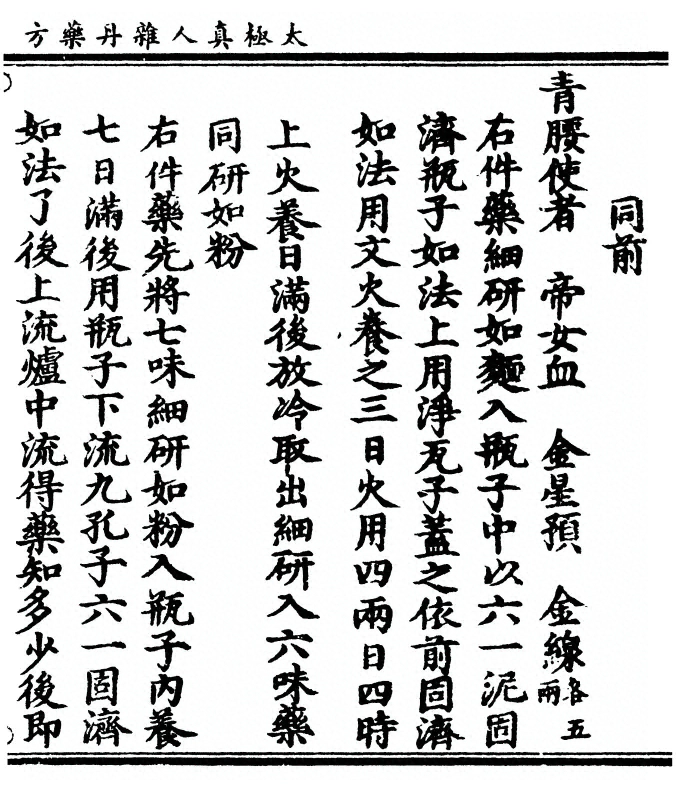 太極真人雜丹藥方
同前
青腰使者　帝女血　金星預　金線各五兩
右件藥細研如麵入瓶子中以六一泥固
濟瓶子如法上用淨瓦子蓋之依前固濟
如法用文火養之三日火用四兩日四時
上火養日滿後放冷取出細研入六味藥
同研如粉
右件藥先將七味細研如粉入瓶子內養
七日滿後用瓶子下流九孔子六一固濟
如法了後上流爐中流得藥知多少後即